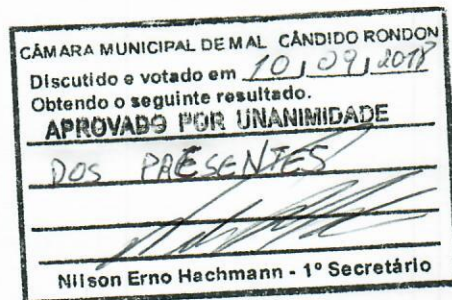 CÂMARA MUNICIPAL DE MAL CÂNDIDO RONDON
Discutido e votado em 10/09/2018
Obtendo o seguinte resultado.
APROVADO POR UNANIMIDADE
DOS PRESENTES
Nilson Erno Hachmann - 1º Secretário